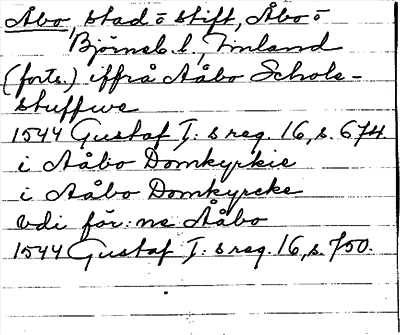 Åbo, stad o stift, Åbo o
Björneb. l., Finland
(forts.) iffrå Aåbo Schole-
stuffwe
1544 Gustaf I: s reg. 16, s. 674.
i Aåbo Domkyrkie
i Aåbo Domkyrcke
vdi för: ne Aåbo
1544 Gustaf I: s reg. 16, s. 750.